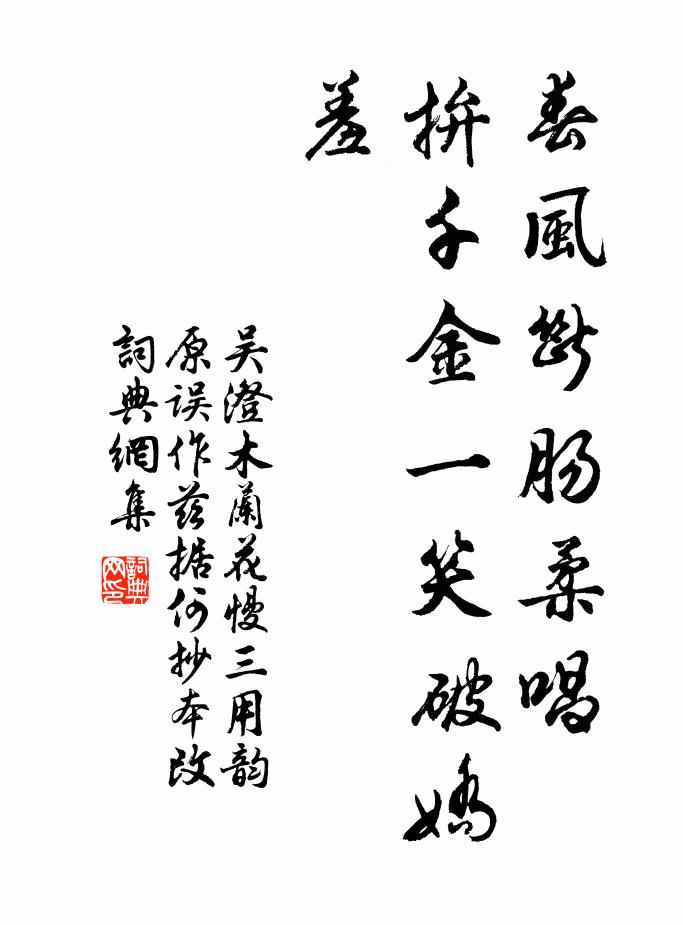 春風斷肠柔唱
拚千金一笑破嬌
羞
吴澄木蘭花慢三用韵
原误作兹据何抄本改
詞典網集
詞典网印